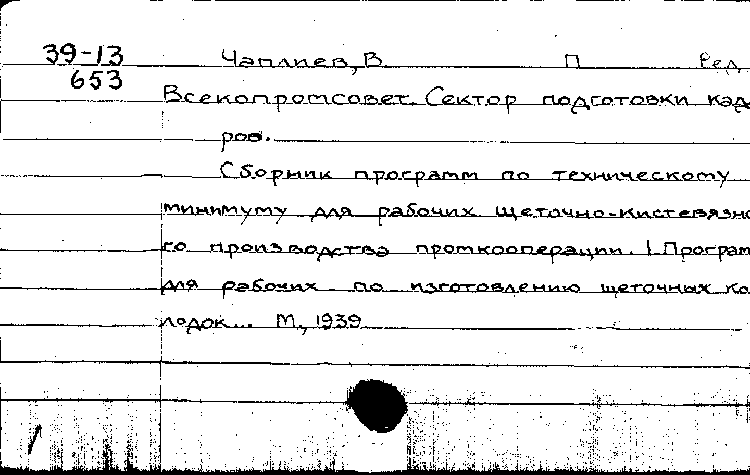 39-13 Чаплиев, В П Ред
653
Всекопромсовет. Сектор подготовки кад
ров.
Сборник программ по техническому
минимуму для рабочих щеточно-кистевязно
го производства промкооперации. 1. Програм
для рабочих по изготовлению щеточных ко
лодок... М., 1939